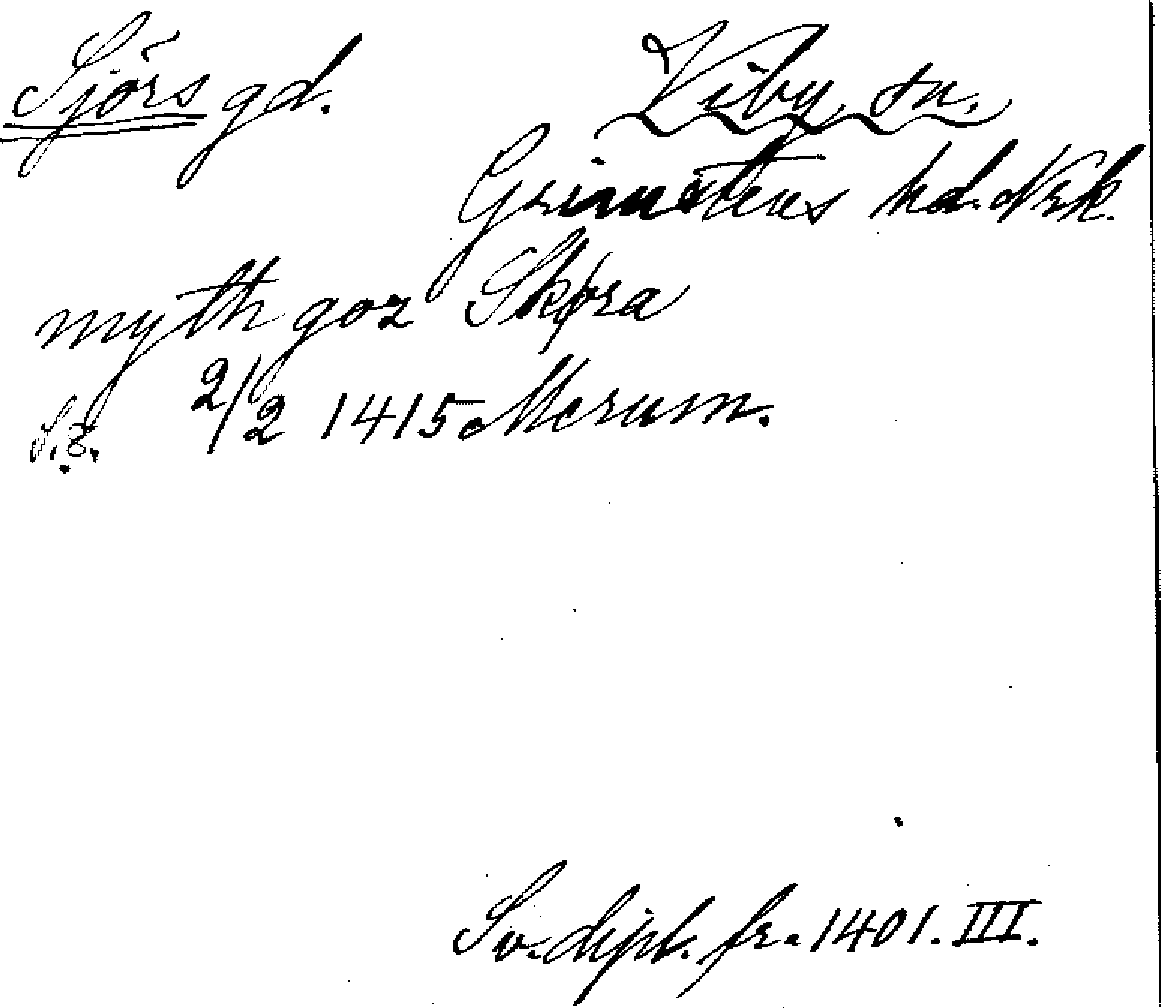 Sjörs gd. Viby sn.
Grimstens hd. Nrk.
myth goz Skøra
S.E. 2/2 1415 Merum.
Sv. dipl. fr. 1401. III.